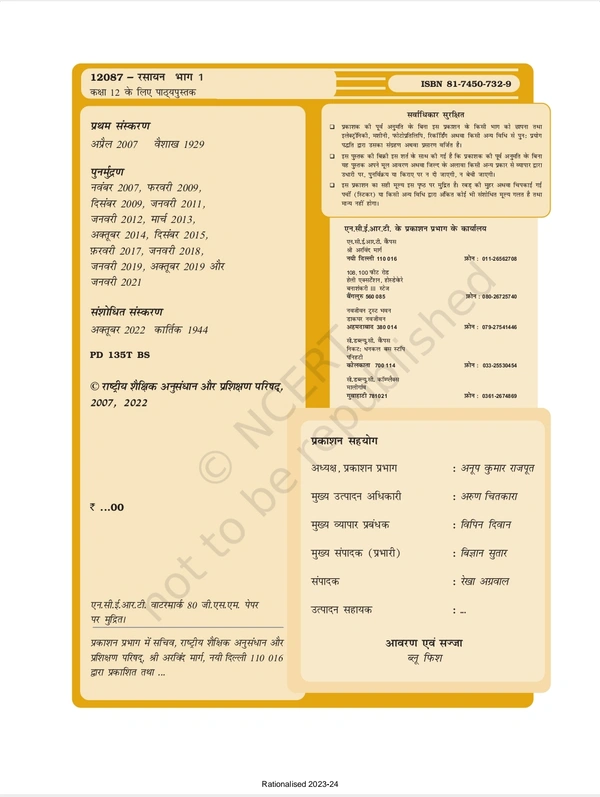 12087 – रसायन भाग 1
कक्षा 12 के लिए पाठ्यपुस्तक
ISBN 81-7450-732-9
प्रथम संस्करण
अप्रैल 2007 वैशाख 1929
पुनर्मुद्रण
नवंबर 2007, फरवरी 2009,
दिसंबर 2009, जनवरी 2011,
जनवरी 2012, मार्च 2013,
अक्तूबर 2014, दिसंबर 2015,
फ़रवरी 2017, जनवरी 2018,
जनवरी 2019, अक्तूबर 2019 और
जनवरी 2021
संशोधित संस्करण
अक्तूबर 2022 कार्तिक 1944
PD 135T BS
© राष्ट्रीय शैक्षिक अनुसंधान और प्रशिक्षण परिषद्,
2007, 2022
₹ ...00
एन.सी.ई.आर.टी. वाटरमार्क 80 जी.एस.एम. पेपर
पर मुद्रित।
प्रकाशन प्रभाग में सचिव, राष्ट्रीय शैक्षिक अनुसंधान और
प्रशिक्षण परिषद्, श्री अरविंद मार्ग, नयी दिल्ली 110 016
द्वारा प्रकाशित तथा ...
सर्वाधिकार सुरक्षित
❑ प्रकाशक की पूर्व अनुमति के बिना इस प्रकाशन के किसी भाग को छापना तथा
इलेक्ट्रॉनिकी, मशीनी, फोटोप्रतिलिपि, रिकॉर्डिंग अथवा किसी अन्य विधि से पुन: प्रयोग
पद्धति द्वारा उसका संग्रहण अथवा प्रसारण वर्जित है।
❑ इस पुस्तक की बिक्री इस शर्त के साथ की गई है कि प्रकाशक की पूर्व अनुमति के बिना
यह पुस्तक अपने मूल आवरण अथवा जिल्द के अलावा किसी अन्य प्रकार से व्यापार द्वारा
उधारी पर, पुनर्विक्रय या किराए पर न दी जाएगी, न बेची जाएगी।
❑ इस प्रकाशन का सही मूल्य इस पृष्ठ पर मुद्रित है। रबड़ की मुहर अथवा चिपकाई गई
पर्ची (स्टिकर) या किसी अन्य विधि द्वारा अंकित कोई भी संशोधित मूल्य गलत है तथा
मान्य नहीं होगा।
एन.सी.ई.आर.टी. के प्रकाशन प्रभाग के कार्यालय
एन.सी.ई.आर.टी. कैंपस
श्री अरविंद मार्ग
नयी दिल्ली 110 016 फ़ोन : 011-26562708
108, 100 फीट रोड
हेली एक्सटेंशन, होस्डेकेरे
बनाशंकरी III स्टेज
बैंगलुरु 560 085 फ़ोन : 080-26725740
नवजीवन ट्रस्ट भवन
डाकघर नवजीवन
अहमदाबाद 380 014 फ़ोन : 079-27541446
सी.डब्ल्यू.सी. कैंपस
निकट: धनकल बस स्टॉप
पनिहटी
कोलकाता 700 114 फ़ोन : 033-25530454
सी.डब्ल्यू.सी. कॉम्प्लैक्स
मालीगाँव
गुवाहाटी 781021 फ़ोन : 0361-2674869
प्रकाशन सहयोग
अध्यक्ष, प्रकाशन प्रभाग : अनूप कुमार राजपूत
मुख्य उत्पादन अधिकारी : अरुण चितकारा
मुख्य व्यापार प्रबंधक : विपिन दिवान
मुख्य संपादक (प्रभारी) : बिज्ञान सुतार
संपादक : रेखा अग्रवाल
उत्पादन सहायक : ...
आवरण एवं सज्जा
ब्लू फिश
© NCERT
not to be republished
Rationalised 2023-24